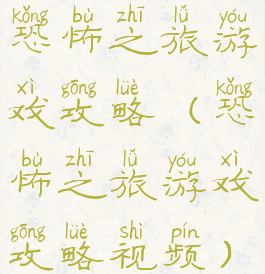 kǒng bù zhī lǚ yóu
恐怖之旅游
xì gōng lüè kǒng
戏攻略（恐
bù zhī lǚ yóu xì
怖之旅游戏
gōng lüè shì pín
攻略视频）